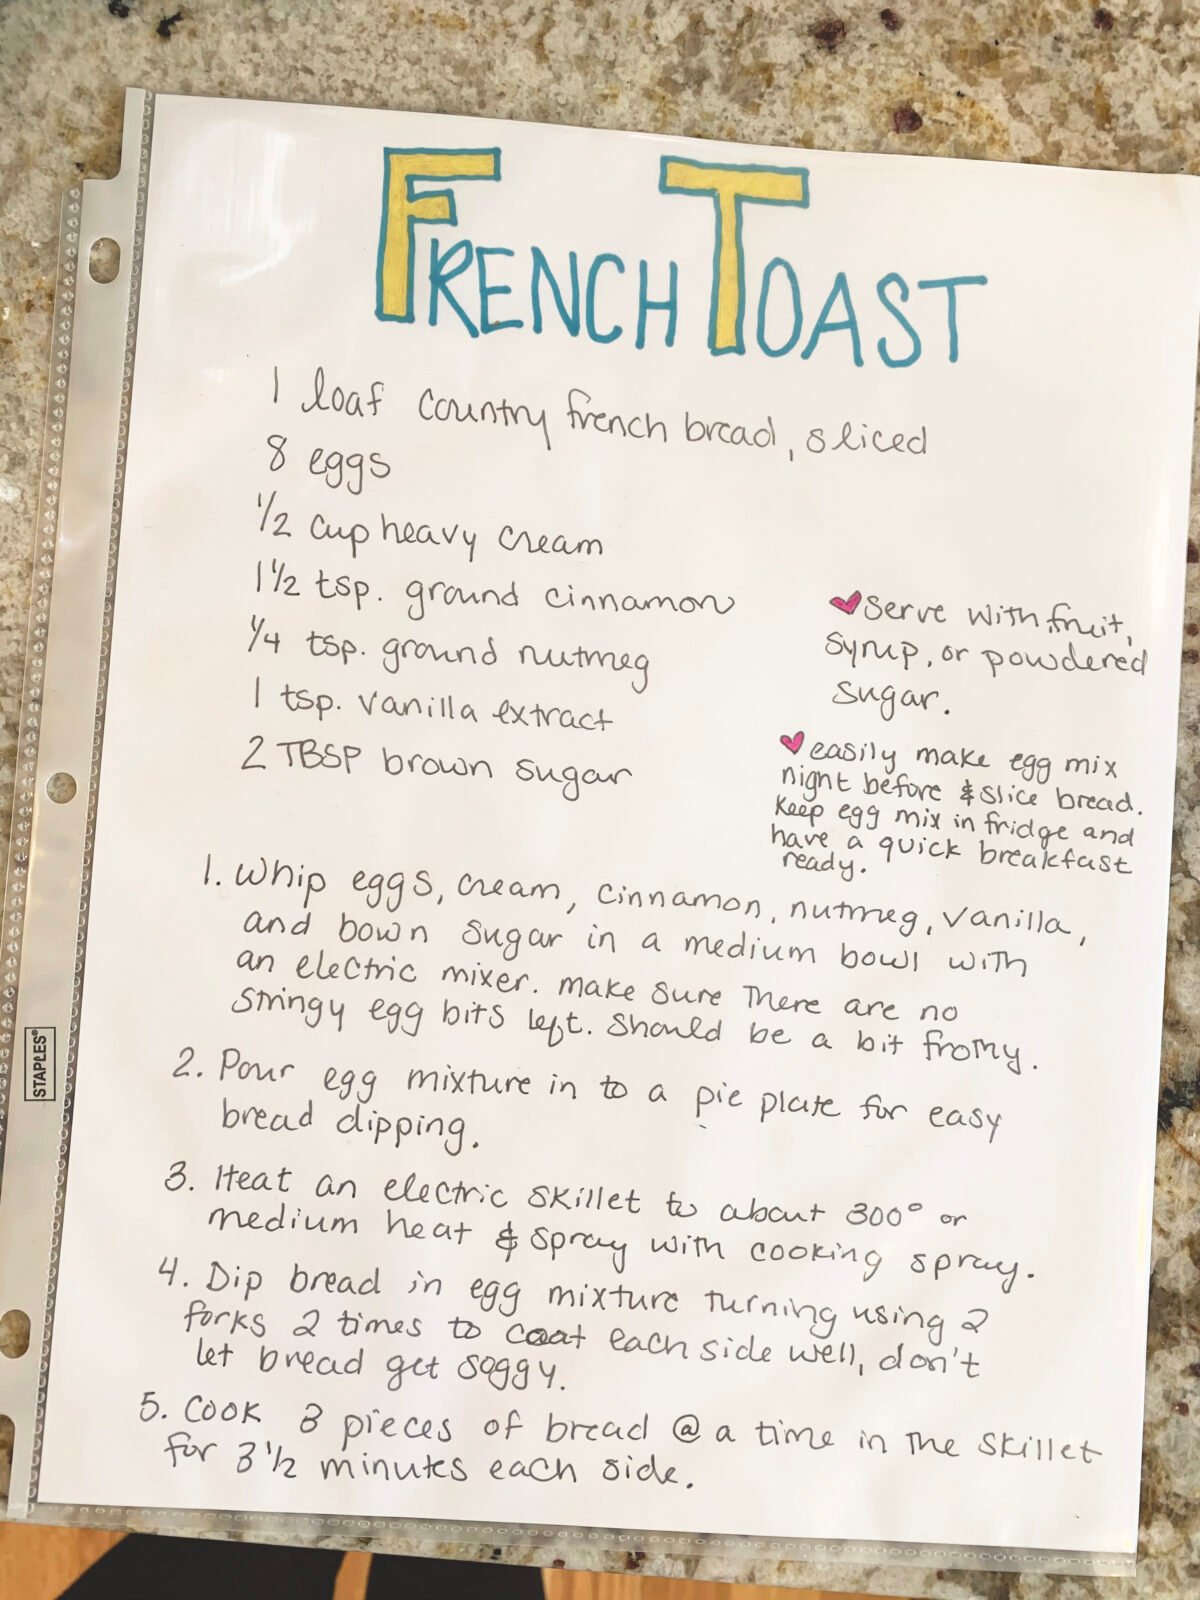 FRENCH TOAST
1 loaf country french bread, sliced
8 eggs
1/2 cup heavy cream
1 1/2 tsp. ground cinnamon
1/4 tsp. ground nutmeg
1 tsp. vanilla extract
2 TBSP brown sugar
♥ serve with fruit,
syrup, or powdered
sugar.
♥ easily make egg mix
night before & slice bread.
Keep egg mix in fridge and
have a quick breakfast
ready.
1. Whip eggs, cream, cinnamon, nutmeg, vanilla,
and bown sugar in a medium bowl with
an electric mixer. make sure there are no
stringy egg bits left. Should be a bit frothy.
2. Pour egg mixture in to a pie plate for easy
bread dipping.
3. Heat an electric skillet to about 300° or
medium heat & spray with cooking spray.
4. Dip bread in egg mixture turning using 2
forks 2 times to coat each side well, don't
let bread get soggy.
5. Cook 3 pieces of bread @ a time in the skillet
for 3 1/2 minutes each side.
STAPLES®